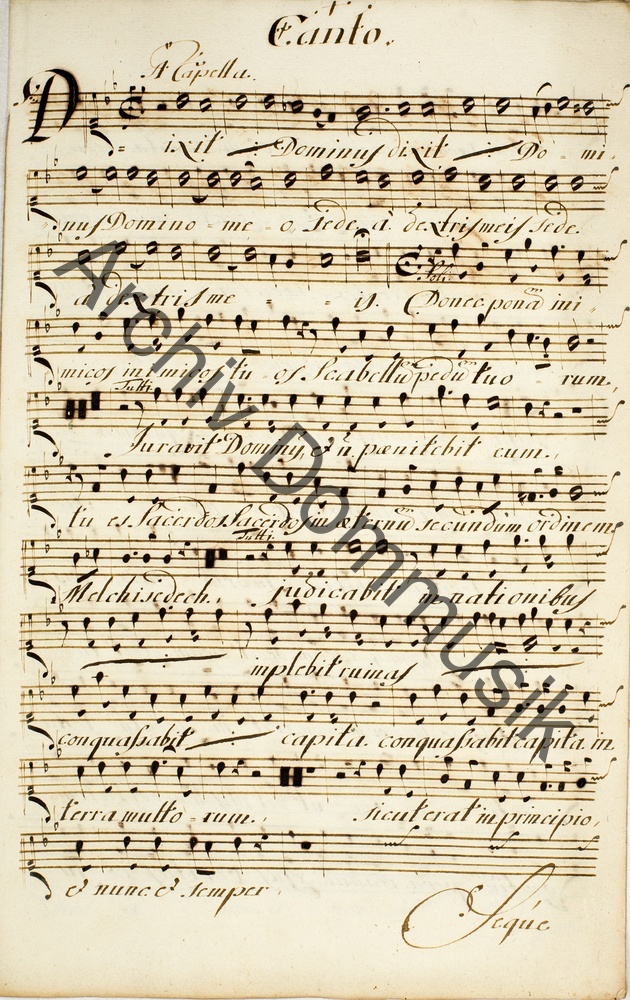 Canto.
A Capella.
Dixit Dominus dixit Domi-
nus Domino meo sede à dextris meis sede
à dextris me - - is. Solo Donec ponā ini-
micos inimicos tu - os Scabellū pedū tuo rum.
Tutti
Juravit Dominus, et n. pænitebit eum.
tu es Sacerdos Sacerdos in æternū secundum ordinem
Tutti
Melchisedech. judicabit in nationibus
implebit ruinas
conquassabit capita. conquassabit capita. in
terra multo - rum. sicut erat in principio,
et nunc et semper
Seque
Archiv Dommusik